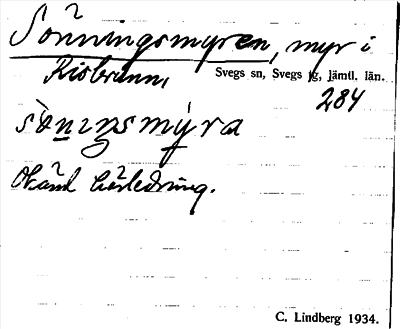 Sönningsmyren, myr i
Risbrunn, Svegs sn, Svegs tg, Jämtl. län.
284
sö̀nıŋsmýra
Okänd härledning.
C. Lindberg 1934.